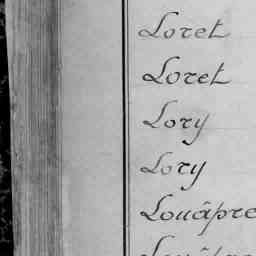 Loret
Loret
Lory
Lory
Louâpre